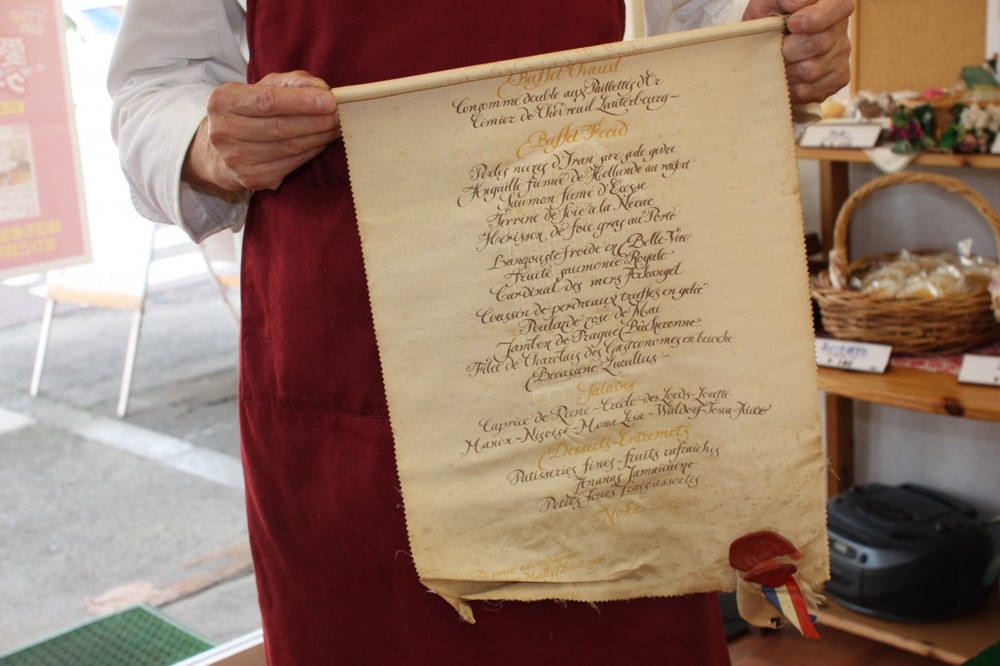 Buffet Chaud
Consommé double aux Paillettes d'Or
Cimier de Chevreuil Lauterbourg
Buffet Froid
Perles noires d'Iran sur socle givré
Anguille fumée de Hollande au raifort
Saumon fumé d'Ecosse
Terrine de foie à la Nérac
Hérisson de foie gras au Porto
Langouste froide en Belle-Vue
Truite saumonée Royale
Cardinal des mers Arkangel
Coussin de perdreaux truffés en gelée
Poularde rose de Mai
Jambon de Prague Bâcharenne
Filet de Charolais des Gastronomes en brioche
Bécassine Lucullus
Salades
Caprice de Reine - Créole des Lords - Lorette
Manon - Niçoise - Mona Lisa - Waldorf - Tosca - Alice
Desserts-Entremets
Pâtisseries fines - fruits rafraîchis
Ananas Jamaïcaine
Petits fours frais assortis
Moka